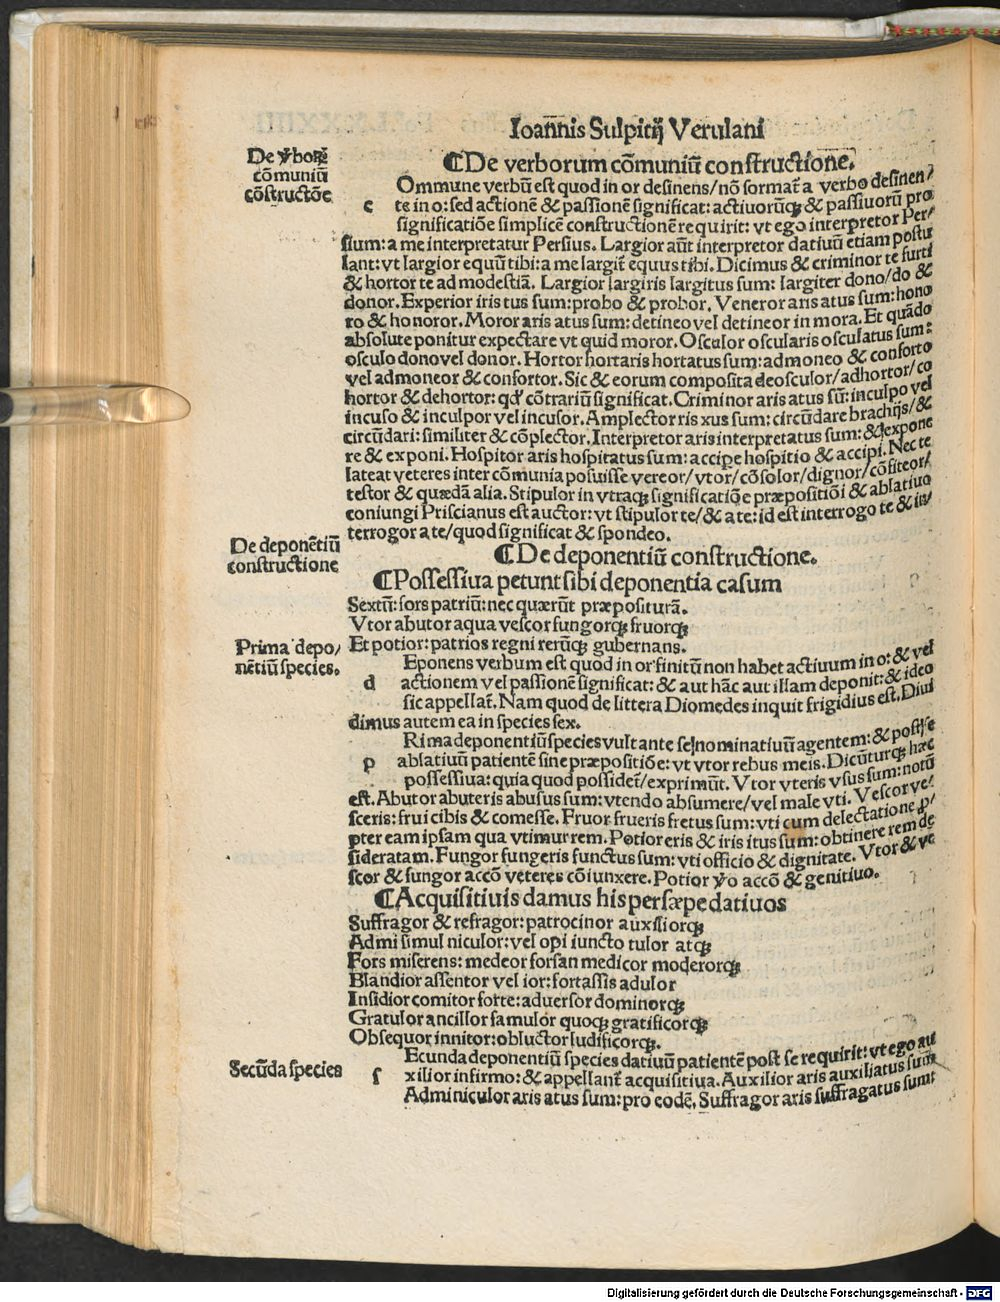 Ioannis Sulpitij Verulani
De v̄boꝝ
cōmuniū
cōstructōe
¶De verborum cōmuniū constructione.
Ommune verbū est quod in or desinens/nō format̄ a verbo desinen/
c te in o: sed actionē & passionē significat: actiuorūꝗ & passiuorū pro
significatiōe simplicē constructionē requirit: vt ego interpretor Per/
sium: a me interpretatur Persius. Largior aūt interpretor datiuū etiam postu
lant: vt largior equū tibi: a me largit̄ equus tibi. Dicimus & criminor te furti
& hortor te ad modestiā. Largior largiris largitus sum: largiter dono/do &
donor. Experior iris tus sum: probo & probor. Veneror aris atus sum: hono
ro & honoror. Moror aris atus sum: detineo vel detineor in mora. Et quādo
absolute ponitur expectare vt quid moror. Osculor oscularis osculatus sum:
osculo dono vel donor. Hortor hortaris hortatus sum: admoneo & conforto
vel admoneor & confortor. Sic & eorum composita deosculor/adhortor/co
hortor & dehortor: qd' cōtrariū significat. Criminor aris atus sū: inculpo vel
incuso & inculpor vel incusor. Amplector ris xus sum: circūdare brachijs/&
circūdari: similiter & cōplector. Interpretor aris interpretatus sum: & expone
re & exponi. Hospitor aris hospitatus sum: accipe hospitio & accipi. Nec te
lateat veteres inter cōmunia posuisse vereor/vtor/cōsolor/dignor/cōfiteor/
testor & quædā alia. Stipulor in vtraꝗ significatiōe præpositiōi & ablatiuo
coniungi Priscianus est auctor: vt stipulor te/& a te: id est interrogo te & in/
terrogor a te/quod significat & spondeo.
De deponētiū
constructione
¶De deponentiū constructione.
¶Possessiua petunt sibi deponentia casum
Sextū: fors patriū: nec quærūt præpositurā.
Vtor abutor aqua vescor fungorꝗ fruorꝗ
Et potior: patrios regni rerūꝗ gubernans.
Prima depo/
nētiū species.
Eponens verbum est quod in or finitū non habet actiuum in o: & vel
d actionem vel passionē significat: & aut hāc aut illam deponit: & ideo
sic appellat̄. Nam quod de littera Diomedes inquit frigidius est. Diui
dimus autem ea in species sex.
Rima deponentiū species vult ante se nominatiuū agentem: & post se
p ablatiuū patientē sine præpositiōe: vt vtor rebus meis. Dicūturꝗ hæc
possessiua: quia quod possidet̄/exprimūt. Vtor vteris vsus sum: notū
est. Abutor abuteris abusus sum: vtendo absumere/vel male vti. Vescor ve/
sceris: frui cibis & comesse. Fruor frueris fretus sum: vti cum delectatione p/
pter eam ipsam qua vtimur rem. Potior eris & iris itus sum: obtinere rem de
sideratam. Fungor fungeris functus sum: vti officio & dignitate. Vtor & ve
scor & fungor accō veteres cōiunxere. Potior v̄o accō & genitiuo.
¶Acquisitiuis damus his persæpe datiuos
Suffragor & refragor: patrocinor auxiliorꝗ
Admi simul niculor: vel opi iuncto tulor atꝗ
Fors miserens: medeor forsan medicor moderorꝗ
Blandior assentor vel ior: fortassis adulor
Insidior comitor forte: aduersor dominorꝗ
Gratulor ancillor famulor quoꝗ gratificorꝗ
Obsequor innitor: obluctor ludificorꝗ.
Secūda species
Ecunda deponentiū species datiuū patientē post se requirit: vt ego au
s xilior infirmo: & appellant̄ acquisitiua. Auxilior aris auxiliatus sum
Adminiculor aris atus sum: pro eodē. Suffragor aris suffragatus sum:
Digitalisierung gefördert durch die Deutsche Forschungsgemeinschaft - DFG